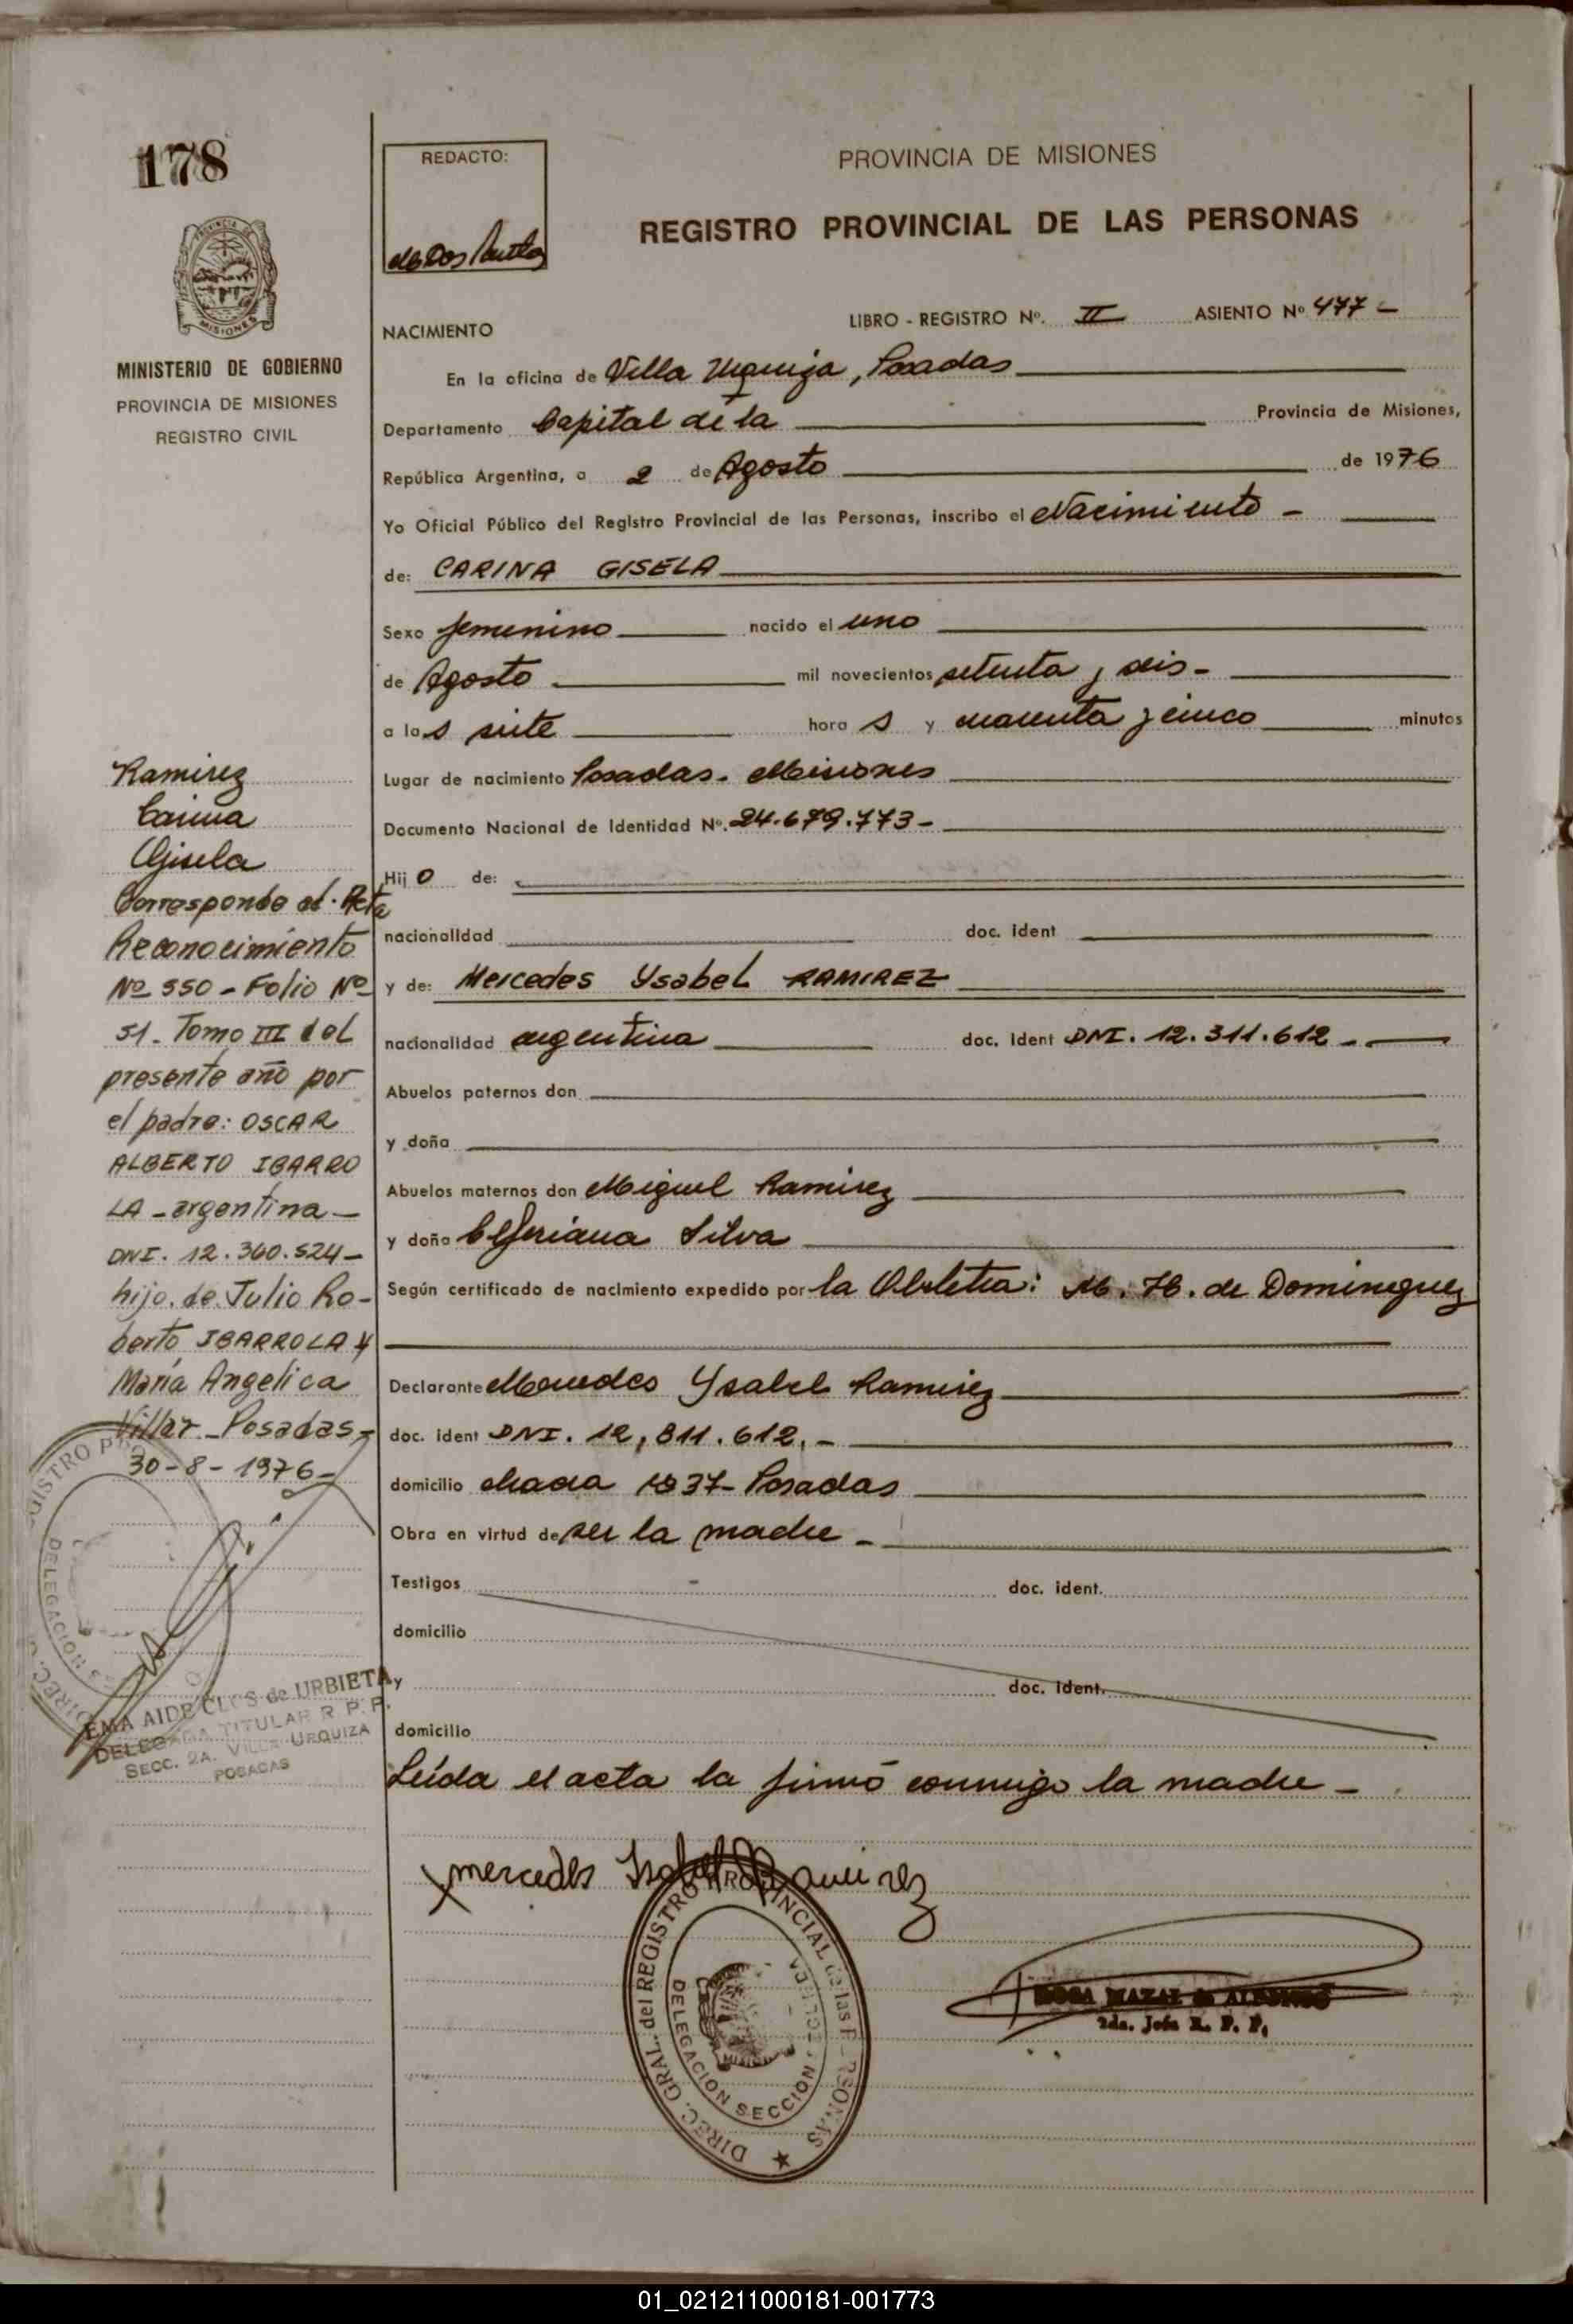 178
REDACTO:
PROVINCIA DE MISIONES
REGISTRO PROVINCIAL DE LAS PERSONAS
MISIONES
MINISTERIO DE GOBIERNO
PROVINCIA DE MISIONES
REGISTRO CIVIL
LIBRO - REGISTRO Nº. II ASIENTO Nº 477 -
NACIMIENTO
En la oficina de Villa Urquiza, Posadas
Departamento Capital de la Provincia de Misiones,
República Argentina, a 2 de Agosto de 1976
Yo Oficial Público del Registro Provincial de las Personas, inscribo el Nacimiento -
de: CARINA GISELA
Sexo femenino nacido el uno
de Agosto mil novecientos setenta y seis -
a las siete hora s y cuarenta y cinco minutos
Lugar de nacimiento Posadas. Misiones
Documento Nacional de Identidad Nº. 24.679.773 -
Hij o de:
nacionalidad doc. ident
y de: Mercedes Ysabel RAMIREZ
nacionalidad argentina doc. ident DNI. 12.311.612 -
Abuelos paternos don
y doña
Abuelos maternos don Miguel Ramirez
y doña Silva
Según certificado de nacimiento expedido por la Obstetra: M. H. de Dominguez
Declarante Mercedes Ysabel Ramirez
doc. ident DNI. 12,811.612. -
domicilio chacra 37 - Posadas
Obra en virtud de ser la madre -
Testigos doc. ident.
domicilio
y doc. ident.
domicilio
Leída el acta la firmó conmigo la madre -
Ramirez
Carina
Gisela
Corresponde al. Acta
Reconocimiento
Nº 550 - Folio Nº
51 - Tomo III del
presente año por
el padre: OSCAR
ALBERTO IBARRO
LA - argentina -
DNI. 12.360.524 -
hijo de Julio Ro-
berto IBARROLA y
María Angelica
Villar - Posadas -
30-8-1976 -
EMA AIDE CLOS de URBIETA
DELEGADA TITULAR R. P. P.
SECC. 2A. VILLA URQUIZA
POSADAS
mercedes Isabel Ramirez
DIREC. GRAL. del REGISTRO PROVINCIAL de las PERSONAS
DELEGACION SECCION
2da. Jefa R. P. P.
01_021211000181-001773